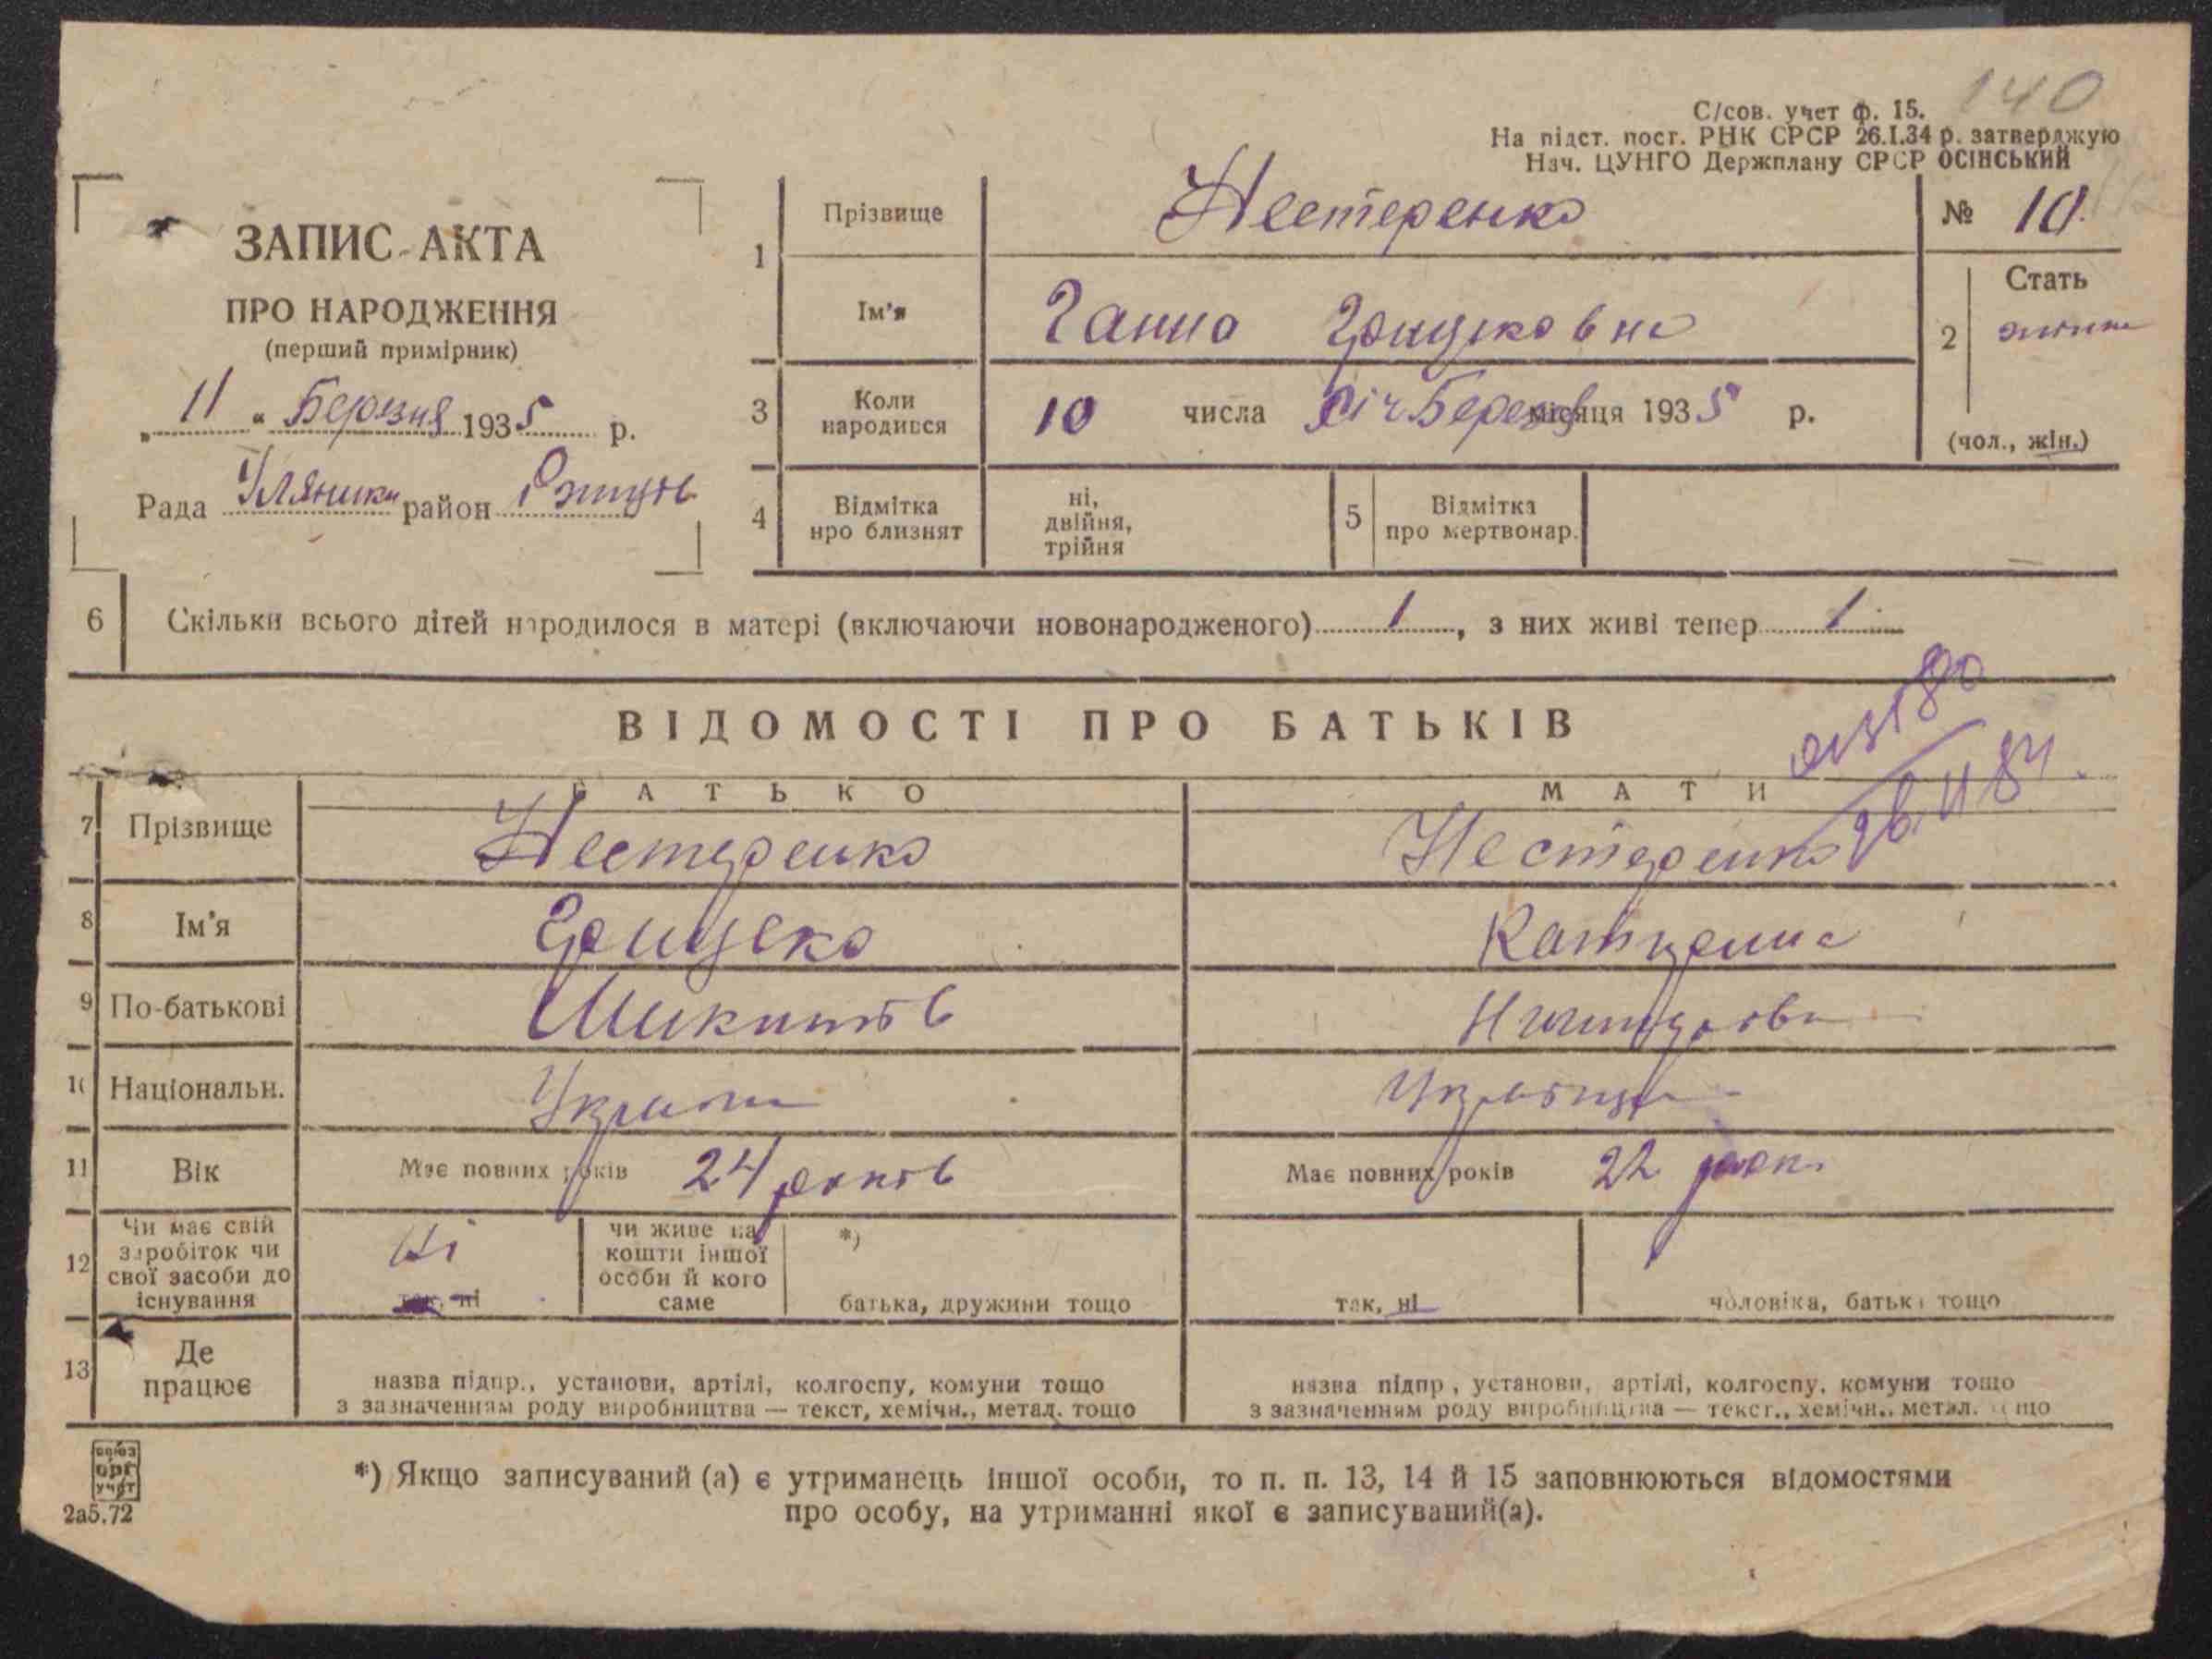 140
С/сов. учет ф. 15.
На підст. пост. РНК СРСР 26.I.34 р. затверджую
Нач. ЦУНГО Держплану СРСР ОСІНСЬКИЙ
ЗАПИС АКТА
ПРО НАРОДЖЕННЯ
(перший примірник)
„ 11 “ Березня 1935 р.
Рада Уляники район Ржищів
1 Прізвище Нестеренко
№ 10.
Ім'я Ганна Грицьковна
2 Стать
(чол., жін.)
3 Коли народився 10 числа Січ Березня місяця 1935 р.
4 Відмітка нро близнят ні, двійня, трійня
5 Відмітка про мертвонар.
6 Скільки всього дітей народилося в матері (включаючи новонародженого) 1, з них живі тепер 1
ВІДОМОСТІ ПРО БАТЬКІВ
26.11 84.
БАТЬКО МАТИ
7 Прізвище Нестеренко Нестеренко
8 Ім'я Грицько Катирина
9 По-батькові Микитов
10 Національн.
11 Вік Має повних років 24 років Має повних років 22 рок.
12 Чи має свій заробіток чи свої засоби до існування Ні
так, ні
чи живе на кошти іншої особи й кого саме
*)
батька, дружини тощо
так, ні
чоловіка, батька тощо
13 Де працює
назва підпр., установи, артілі, колгоспу, комуни тощо
з зазначенням роду виробництва — текст, хемічн., метал. тощо
назва підпр, установи, артілі, колгоспу, комуни тощо
з зазначенням роду виробництва — текст., хемічн., метал. тощо
союз
орг
учет
2а5.72
*) Якщо записуваний (а) є утриманець іншої особи, то п. п. 13, 14 й 15 заповнюються відомостями
про особу, на утриманні якої є записуваний(а).